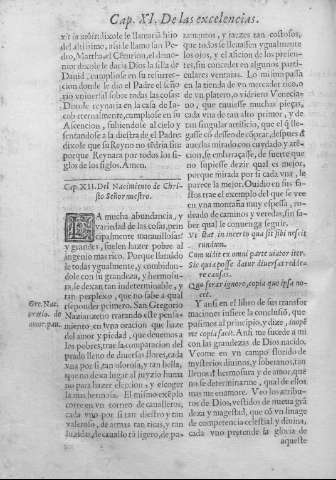 Cap. XI. De las excelencias.
ra la asistir dixole se llamariá hijo
del altissimo, assi le llamo san Pe-
dro, Martha, el Cēturion, el demo-
nio: dixole le daria Dios la silla de
Dauid, cumpliose en su resurrec-
cion donde le dio el Padre el seño
rio vniuersal sobre todas las cosas:
Donde reynaria en la casa de Ia-
cob eternalmente, cumpliose en su
Ascencion, subiendole al cielo y
sentandole a la diestra de el Padre:
dixole que su Reyno no tēdria fin:
porque Reynara por todos los si-
glos de los siglos. Amen.
Cap. XII. Del Nacimiento de Chri-
sto Señor nuestro.
LA mucha abundancia, y
variedad de las cosas, prin
cipalmente marauillosas
y grandes, suelen hazer pobre al
ingenio mas rico. Porque llamādo
le todas ygualmente, y combidan-
dole con su grandeza, y hermosu-
ra, le dexan tan indeterminable, y
tan perplexo, que no sabe a qual
responder primero. San Gregorio
Nazianzeno tratando este pensa-
miento, en vna oracion que haze
del amor y piedad, que deuemos a
los pobres, trae la comparacion del
prado lleno de diuersas flores, cada
vna por si, tan olorosa, y tan bella,
que no dexa lugar al juyzio hasta
no para hazer eleccion, y escoger
la mas hermosa. El mismo exēplo
corre en vn torneo de caualleros,
cada vno por si tan diestro y tan
valeroso, de armas tan ricas, y tan
luzidas, de cauallo tā ligero, de pa-
Gre. Naz.
oratio. de
amor. pau.
ramentos, y jaezes tan costosos,
que todos se lleuassen ygualmente
los ojos, y la aficion de los presen-
tes, sin conceder en algunos parti-
culares ventajas. Lo mismo passa
en la tienda de vn mercader rico, o
de vn platero, o vidriero Venecia-
no, que tuuiesse muchas pieças,
cada vna de tan alto primor, y de
tan singular artificio, que el q̄ lle-
gasse cō desseo de cōprar, despues d̄
auerlas mirado con cuydado y atē-
cion, se embaraçasse, de fuerte que
no supiesse dezir qual es mejor,
porque mirada por si cada vna, le
parece la mejor. Ouidio en sus fa-
stos trae el exemplo del que se vee
en vna montaña muy espessa, ro-
deado de caminos y veredas, sin sa-
ber qual le conuenga seguir.
Vt stet in incerto qua sit sibi nescit
eundum.
Cum videt ex omni parte viator iter.
Sic quia posse datur diuersas reddere
re causas.
Qua ferar ignoro, copia que ipsa no-
cet.
Y ansi en el libro de sus transfor
maciones infiere la conclusion, que
pusimos al principio, y dize, inopē
me copia fecit. Ansi me sucede a mi
con las grandezas de Dios nacido.
Veome en vn campo florido de
mysterios diuinos, y soberanos, tan
llenos d̄ hermosura y de amor, que
no se determinarme, qual de ellos
mas me enamore. Veo los atribu-
tos de Dios, vestidos de nueua grā
deza y magestad, que cō vn linage
de competencia celestial y diuina,
cada vno pretende la gloria de
aqueste